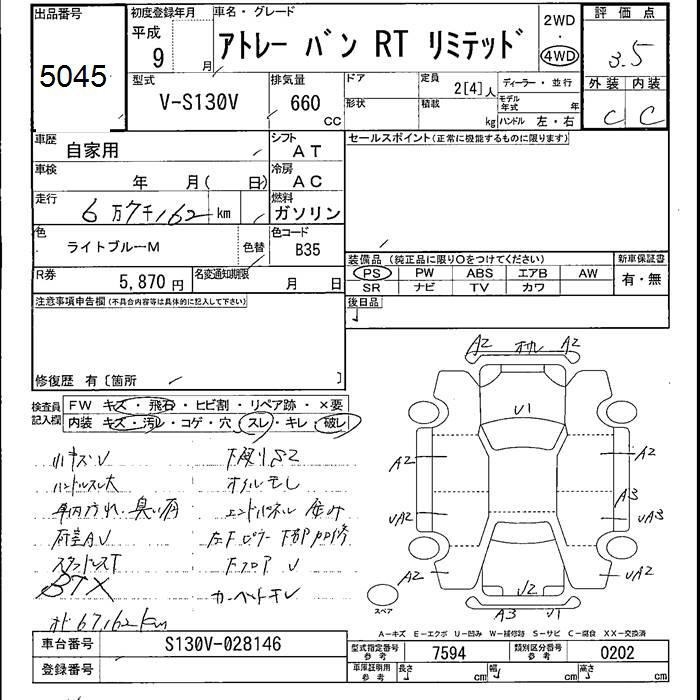 出品番号
5045
初度登録年月
平成
9
月
車名・グレード
アトレー バン RT リミテッド
2WD
・
4WD
評価点
3.5
外装 内装
C C
型式
V-S130V
排気量
660
CC
ドア
定員
2[4]人
ディーラー・並行
形状
積載
kg
モデル年式
年
ハンドル 左・右
車歴
自家用
シフト
AT
セールスポイント(正常に機能するものに限ります)
車検
年 月( 日)
冷房
AC
走行
6万7千162 km
燃料
ガソリン
色
ライトブルーM
色替
色コード
B35
装備品(純正品に限り○をつけてください)
新車保証書
PS PW ABS エアB AW
SR ナビ TV カワ
有・無
R券
5,870円
名変通知期限
月 日
後日品
注意事項申告欄(不具合内容等は具体的に記入して下さい)
修復歴 有〔箇所 〕
検査員記入欄
FW キズ・飛石・ヒビ割・リペア跡・×要
内装 キズ・汚レ・コゲ・穴・スレ・キレ・破レ
小キズV
ハンドルスレ大
荷室AV
BTX
67,162km
下廻りS2
オイルモレ
左Fピラー
FフロアV
A2 A2
U1
A2 A2
A3
UA2 UA3
A2 UA2
U2
A3 U1
スペア
A-キズ E-エクボ U-凹み W-補修跡 S-サビ C-腐食 XX-交換済
車台番号
S130V-028146
型式指定番号参考
7594
類別区分番号参考
0202
登録番号
車庫証明用参考
長さ cm
幅 cm
高さ cm